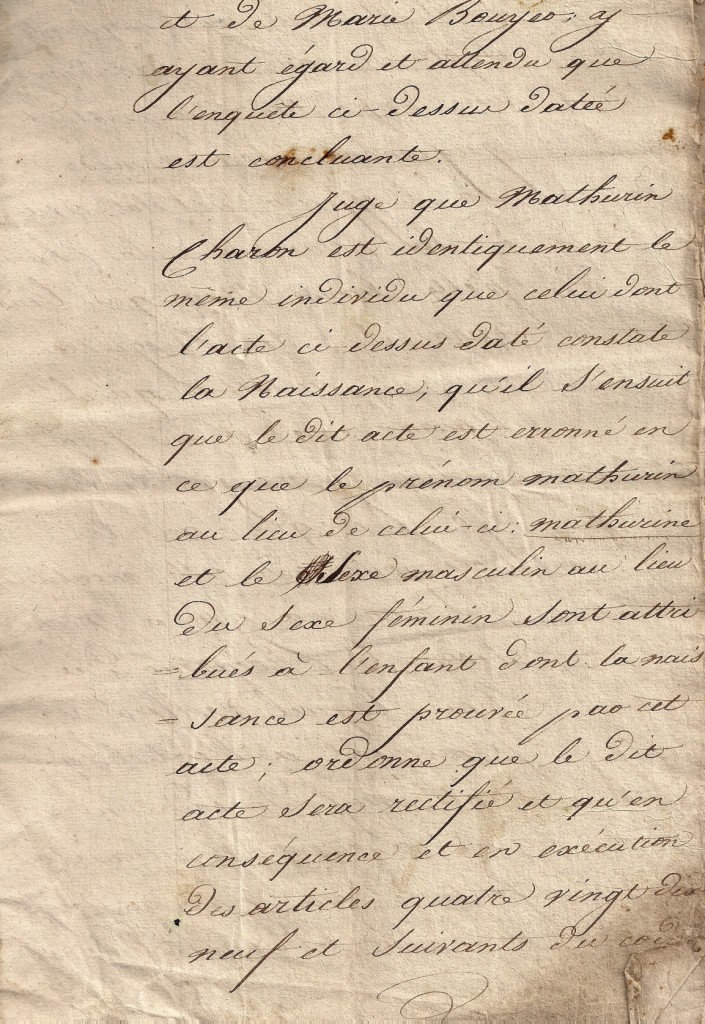 et de Marie Bouyer; y
ayant égard et attendu que
l'enquête ci-dessus datée
est concluante.
Juge que Mathurin
Charon est identiquement le
même individu que celui dont
l'acte ci dessus daté constate
la Naissance, qu'il s'ensuit
que le dit acte est erronné en
ce que le prénom mathurin
au lieu de celui-ci: mathurine
et le Sexe masculin au lieu
du sexe féminin sont attri
=bués à l'enfant dont la nais
=sance est prouvée par cet
acte; ordonne que le dit
acte sera rectifié et qu'en
conséquence et en exécution
des articles quatre vingt dix
neuf et suivants du code